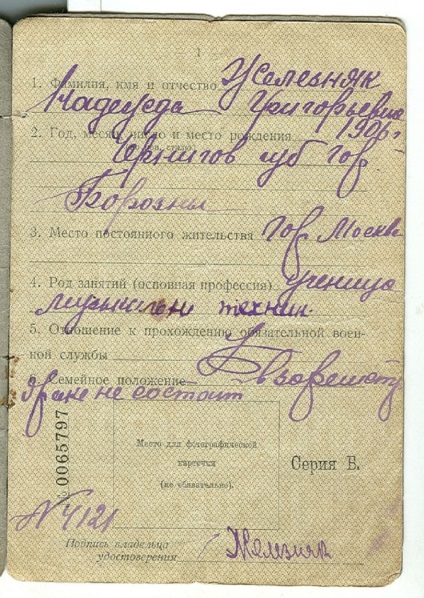 1
1. Фамилия, имя и отчество Железняк
Надежда Григорьевна
2. Год, месяц, число и место рождения 1906 г
Чернигов губ Гор.
Борозны
3. Место постоянного жительства Гор. Москва
4. Род занятий (основная профессия) ученица
музыкальн техник.
5. Отношение к прохождению обязательной воен-
ной службы
6. Семейное положение В зарегистр
браке не состоит
№ 0065797
Место для фотографической
карточки
(не обязательно).
Серия Б.
№ 4121
Подпись владельца
удостоверения Железняк